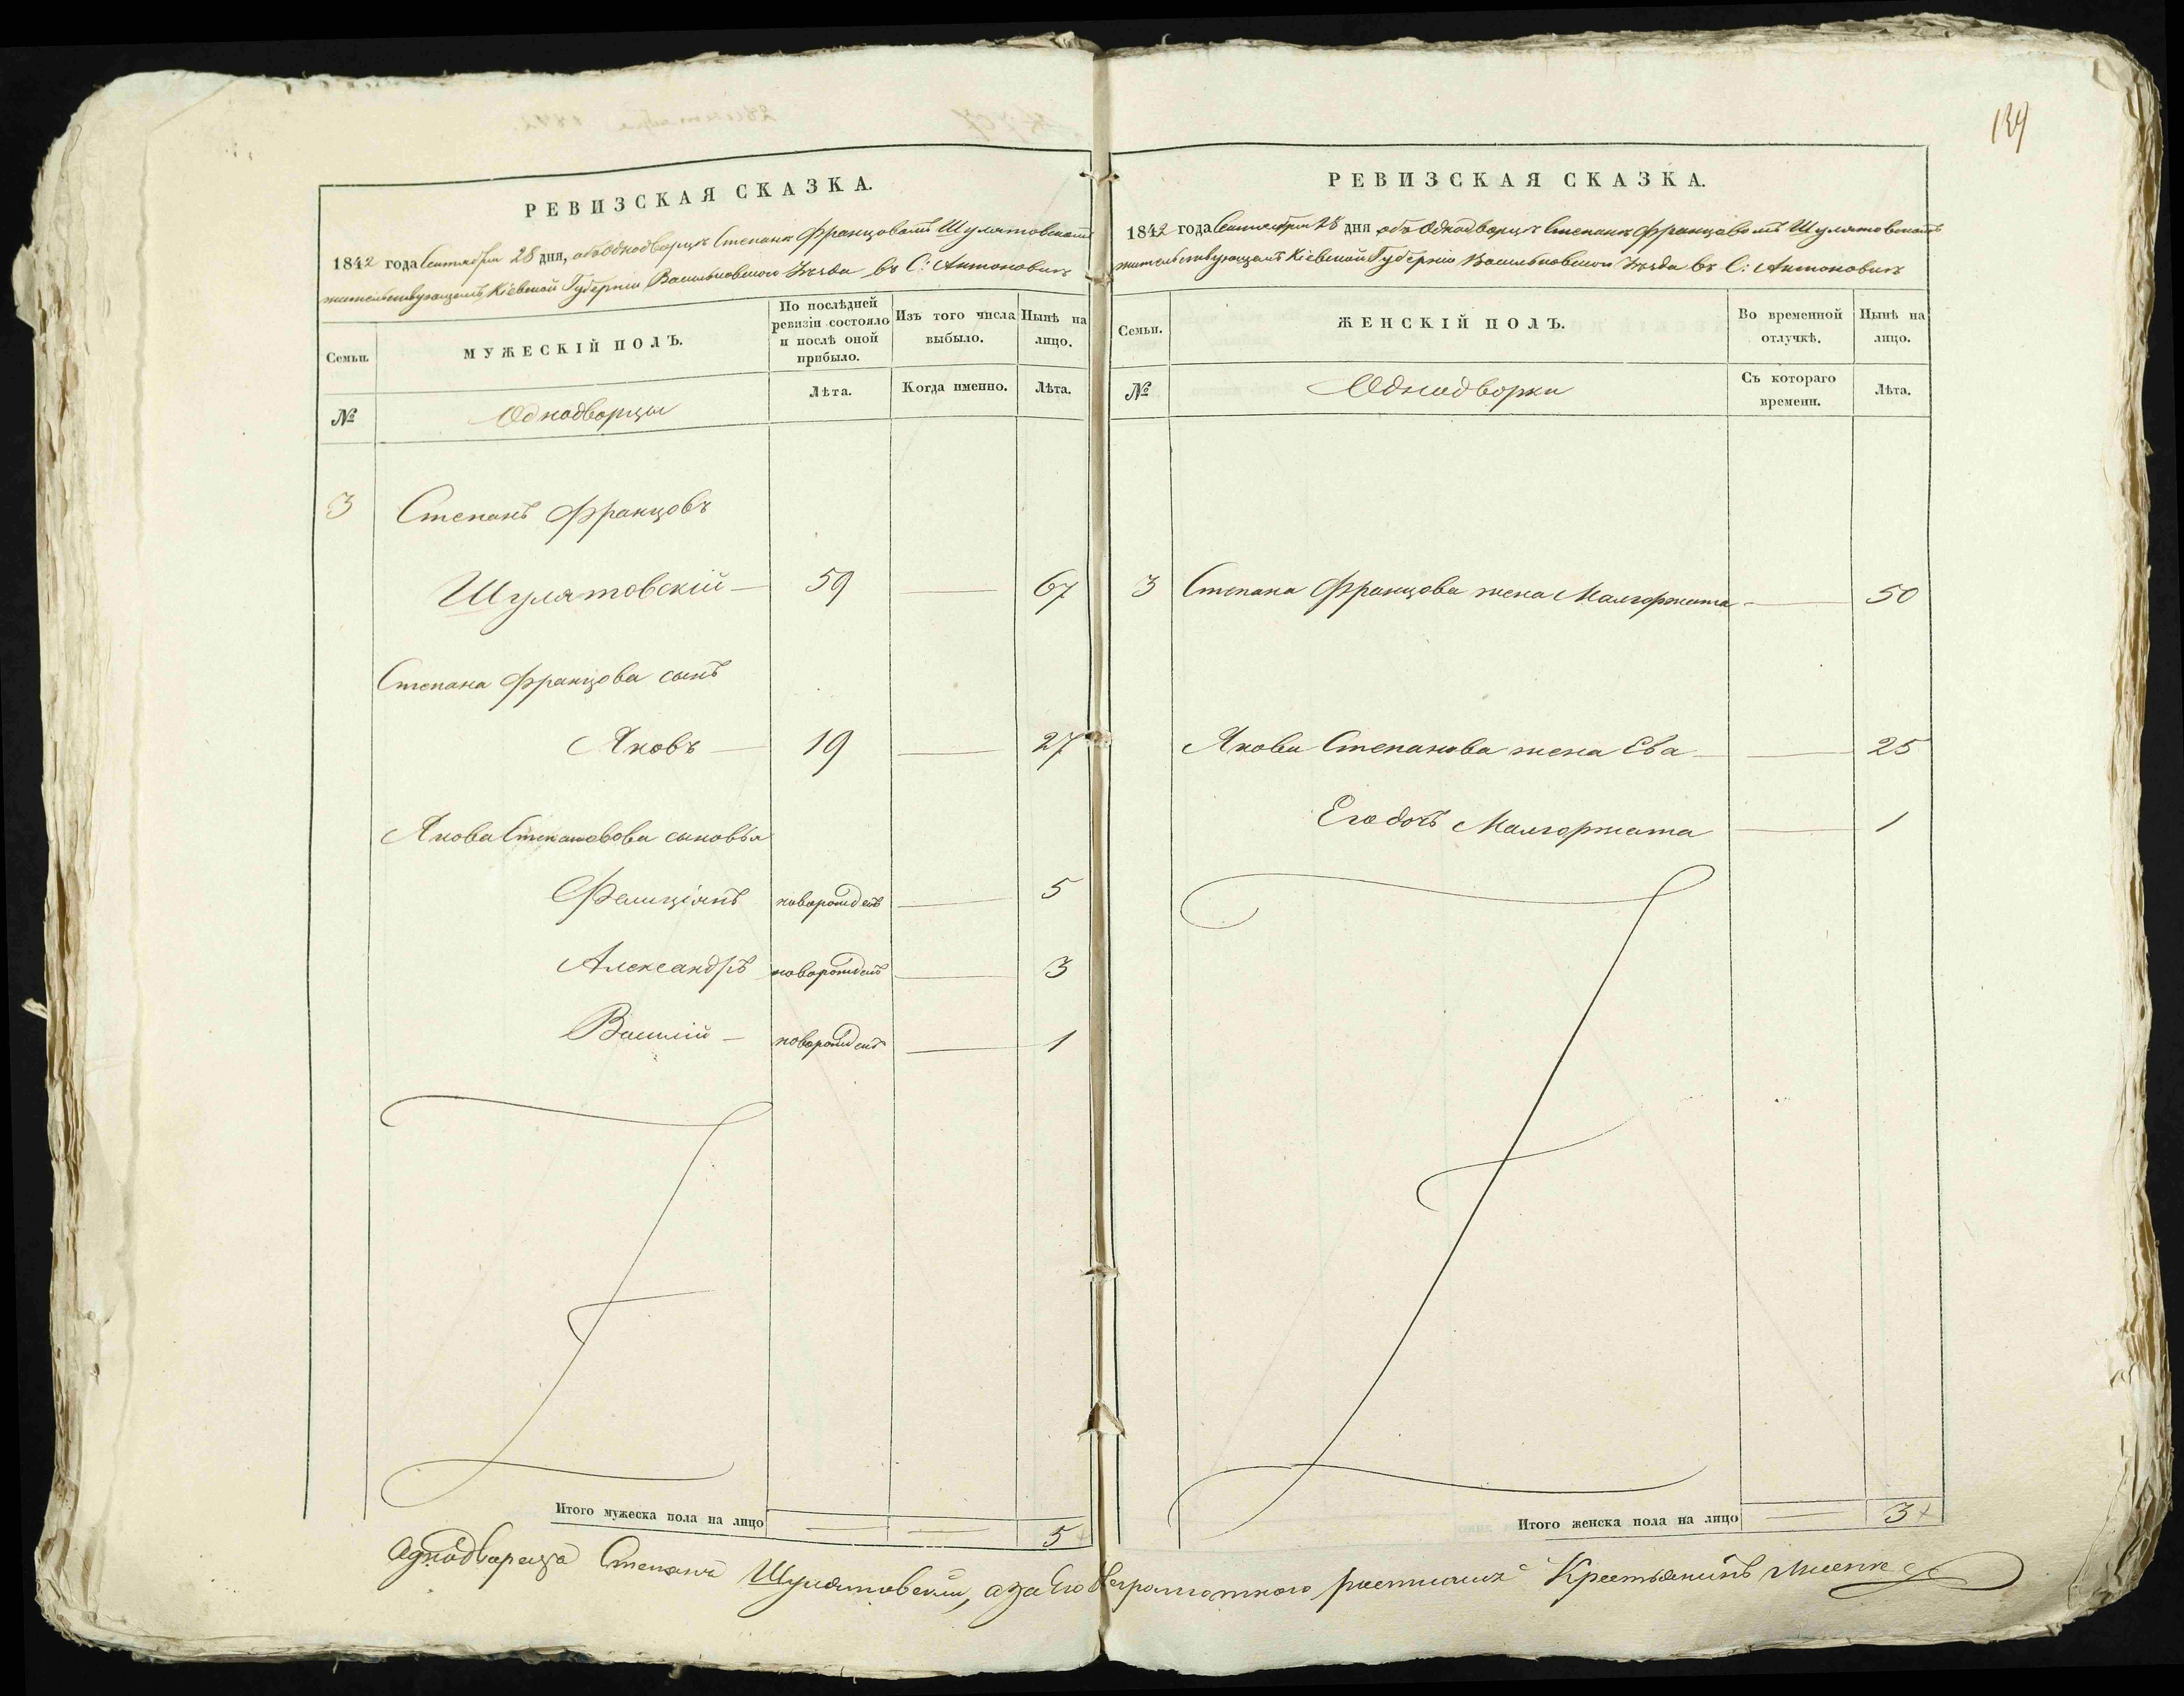 139
РЕВИЗСКАЯ СКАЗКА.
1842 года Сентября 28 дня, объ Однодворцѣ Степанѣ Францовомъ Шулятовскомъ
жительствующемъ Кіевской Губерніи Васильковскаго Уѣзда въ С: Антоновкѣ
Семьи.
МУЖЕСКІЙ ПОЛЪ.
По послѣдней ревизіи состояло и послѣ оной прибыло.
Изъ того числа выбыло.
Нынѣ на лицо.
№
Однодворцы
Лѣта.
Когда именно.
Лѣта.
3 Степанъ Францовъ
Шулятовскій — 59 — 67
Степана Францова сынъ
Яковъ — 19 — 27
Якова Степановова сыновья
Фелиціянъ новорожденъ — 5
Александръ новорожденъ — 3
Василій — новорожденъ — 1
Итого мужеска пола на лицо — — 5
РЕВИЗСКАЯ СКАЗКА.
1842 года Сентября 28 дня объ Однодворцѣ Степанѣ Францовомъ Шулятовскомъ
жительствующемъ Кіевской Губерніи Васильковскаго Уѣзда въ С: Антоновкѣ
Семьи.
ЖЕНСКІЙ ПОЛЪ.
Во временной отлучкѣ.
Нынѣ на лицо.
№
Однодворки
Съ котораго времени.
Лѣта.
3 Степана Францова жена Малгоржата — 50
Якова Степанова жена Ева — 25
Его дочь Малгоржата — 1
Итого женска пола на лицо — 3
Однодворецъ Степанъ Шулятовскій, а за Его неграмотного росписался Крестьянинъ